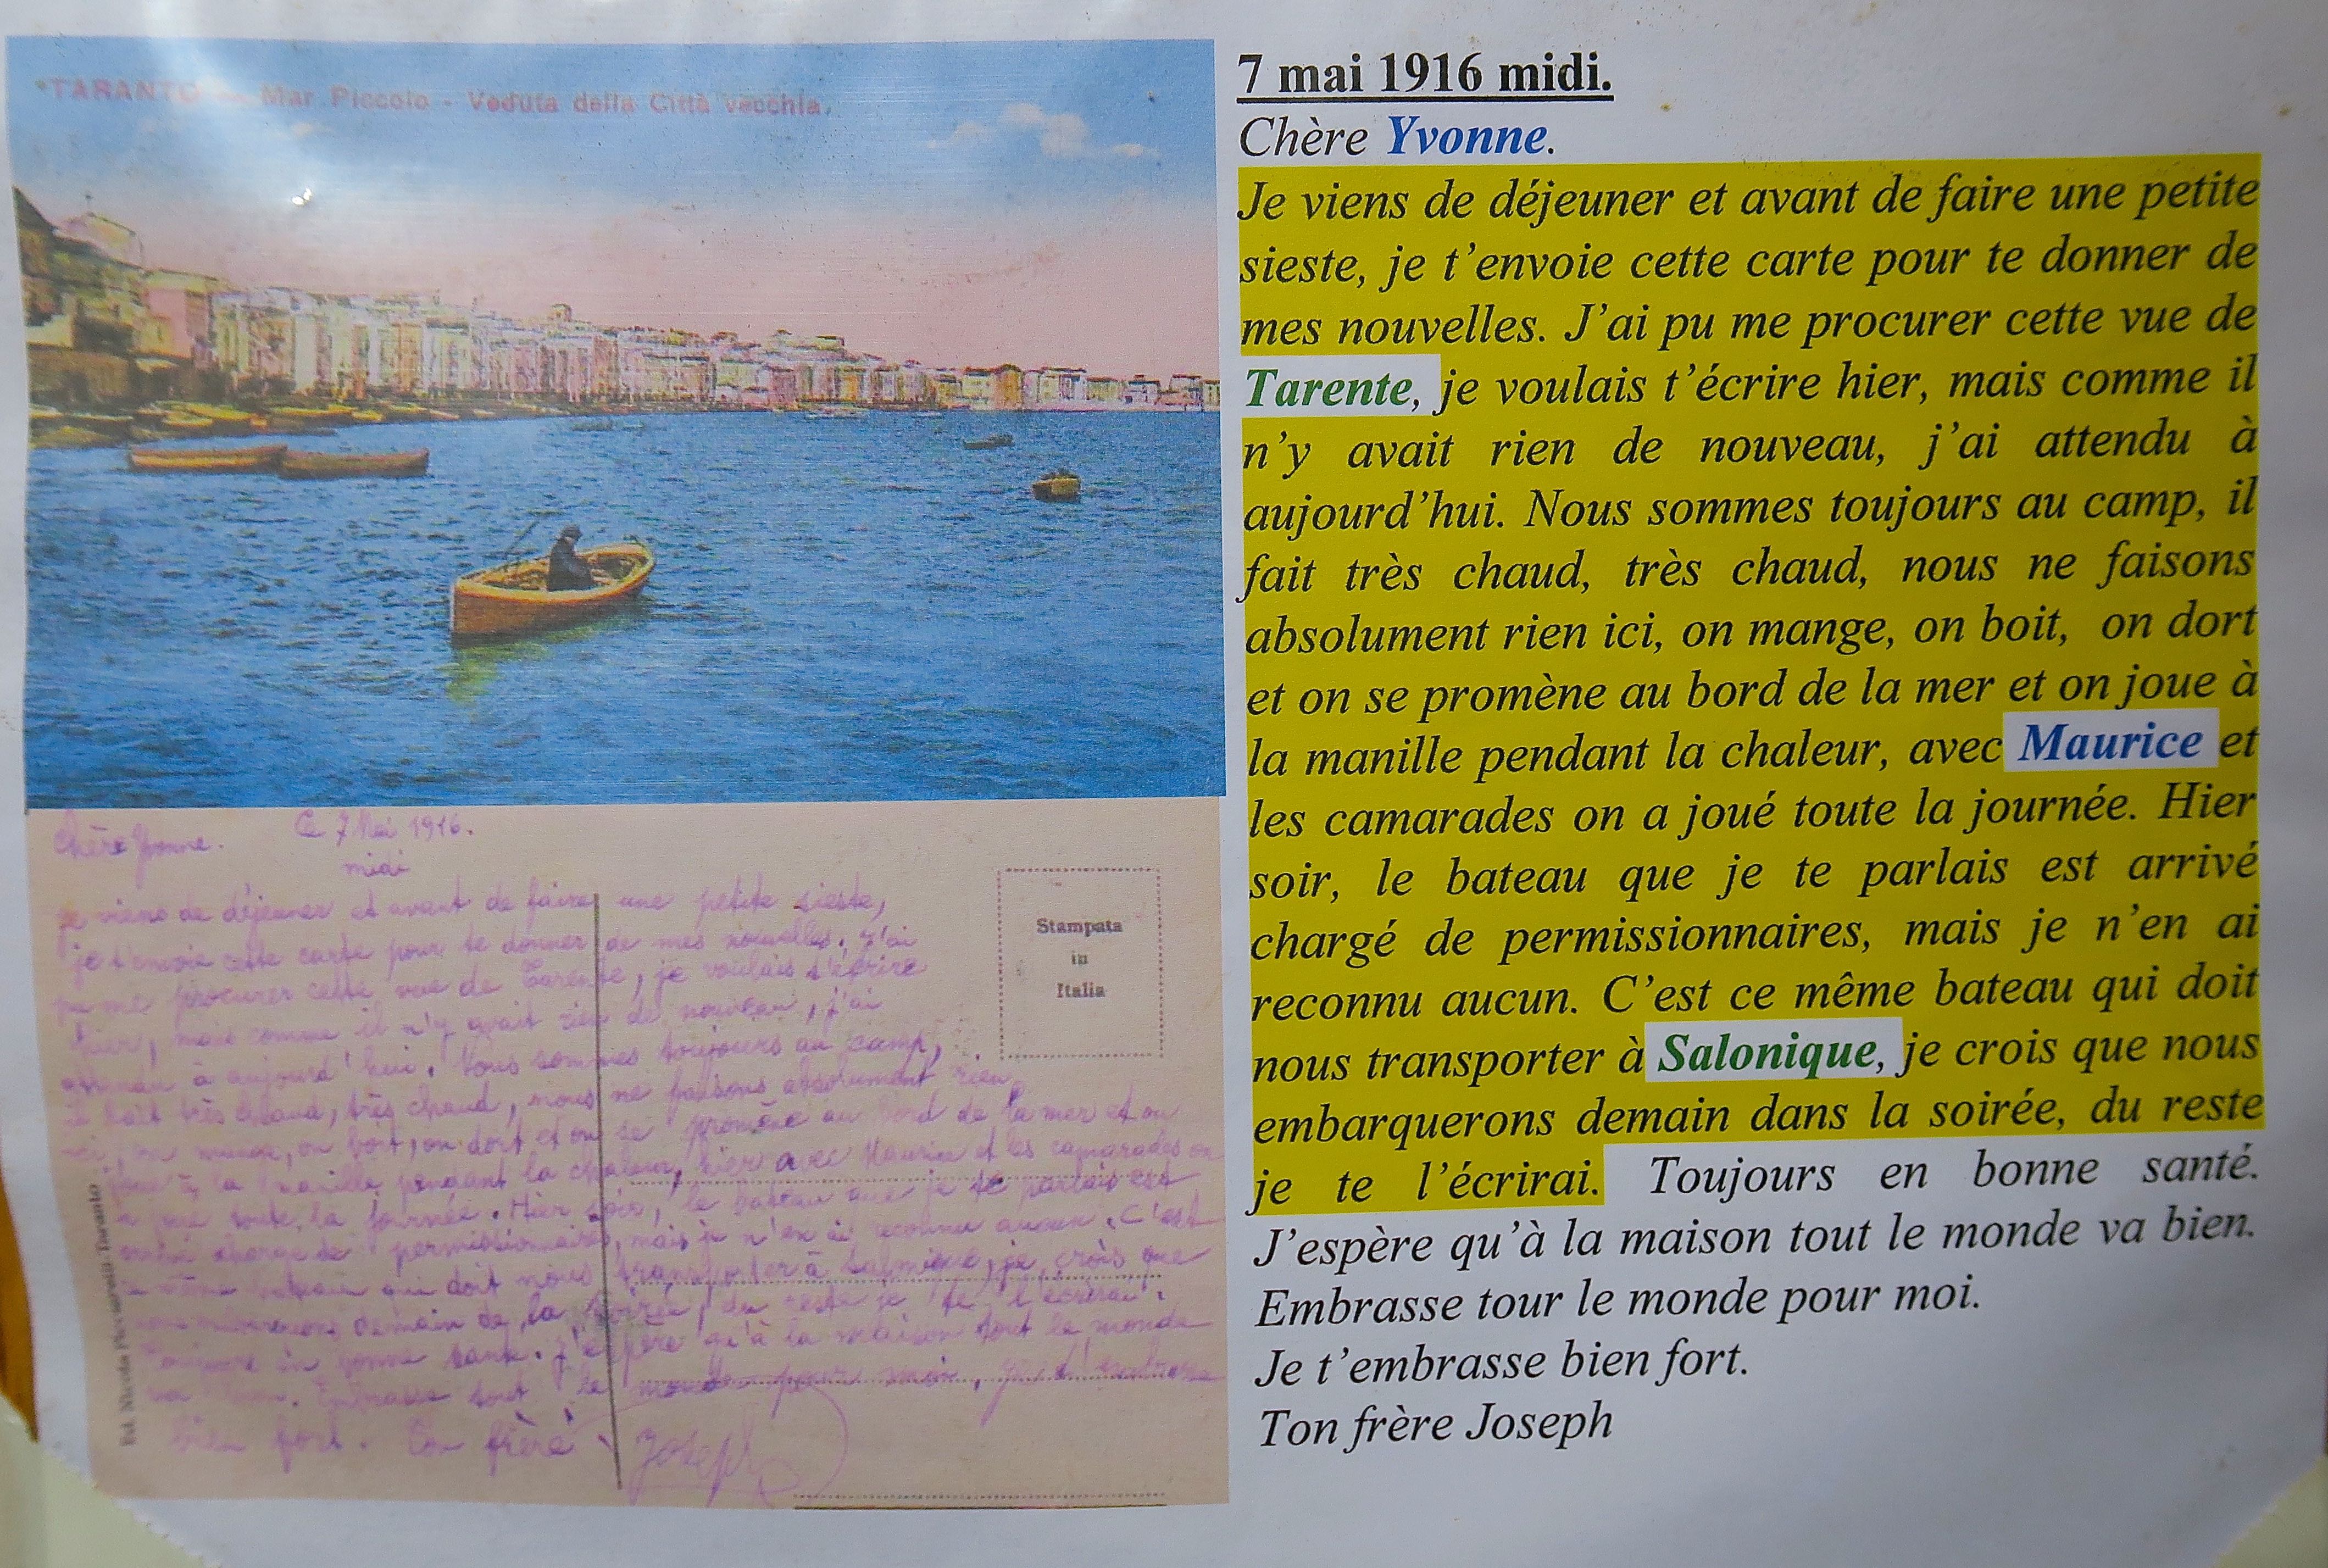 *TARANTO - Mar Piccolo - Veduta della Città vecchia.
Chère Yvonne. Le 7 Mai 1916.
midi
je viens de déjeuner et avant de faire une petite sieste,
je t'envoie cette carte pour te donner de mes nouvelles. J'ai
pu me procurer cette vue de Tarente, je voulais t'écrire
hier, mais comme il n'y avait rien de nouveau, j'ai
attendu à aujourd'hui. Nous sommes toujours au camp,
il fait très chaud, très chaud, nous ne faisons absolument rien
ici, on mange, on boit, on dort et on se promène au bord de la mer et on
joue à la manille pendant la chaleur, hier avec Maurice et les camarades on
a joué toute la journée. Hier soir, le bateau que je te parlais est
arrivé chargé de permissionnaires, mais je n'en ai reconnu aucun. C'est
ce même bateau qui doit nous transporter à Salonique, je crois que
nous embarquerons demain de la soirée, du reste je te l'écrirai.
Toujours en bonne santé. J'espère qu'à la maison tout le monde
va bien. Embrasse tout le monde pour moi. Je t'embrasse
bien fort. Ton frère Joseph
Stampata
in
Italia
Ed. Nicola Taranto
7 mai 1916 midi.
Chère Yvonne.
Je viens de déjeuner et avant de faire une petite
sieste, je t'envoie cette carte pour te donner de
mes nouvelles. J'ai pu me procurer cette vue de
Tarente, je voulais t'écrire hier, mais comme il
n'y avait rien de nouveau, j'ai attendu à
aujourd'hui. Nous sommes toujours au camp, il
fait très chaud, très chaud, nous ne faisons
absolument rien ici, on mange, on boit, on dort
et on se promène au bord de la mer et on joue à
la manille pendant la chaleur, avec Maurice et
les camarades on a joué toute la journée. Hier
soir, le bateau que je te parlais est arrivé
chargé de permissionnaires, mais je n'en ai
reconnu aucun. C'est ce même bateau qui doit
nous transporter à Salonique, je crois que nous
embarquerons demain dans la soirée, du reste
je te l'écrirai. Toujours en bonne santé.
J'espère qu'à la maison tout le monde va bien.
Embrasse tour le monde pour moi.
Je t'embrasse bien fort.
Ton frère Joseph